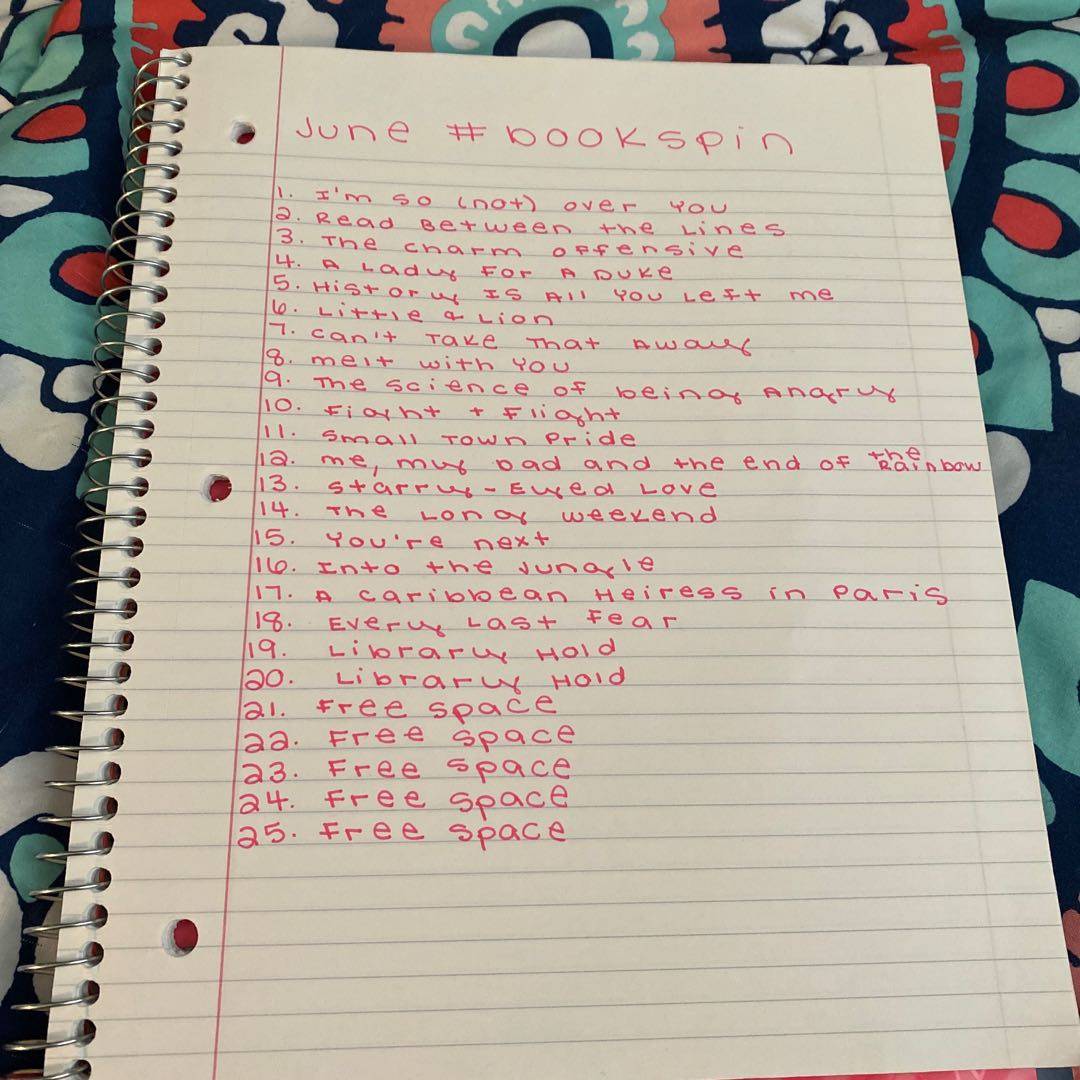 June #bookspin
1. I'm so (not) over you
2. Read Between the Lines
3. The Charm Offensive
4. A Lady for A Duke
5. History Is All You Left me
6. Little & Lion
7. Can't Take That Away
8. melt with you
9. The science of being Angry
10. Fight + Flight
11. Small Town Pride
12. me, my Dad and the end of the Rainbow
13. Starry-Eyed Love
14. The Long weekend
15. You're next
16. Into the Jungle
17. A Caribbean Heiress in Paris
18. Every Last Fear
19. Library Hold
20. Library Hold
21. Free space
22. Free space
23. Free space
24. Free space
25. Free space